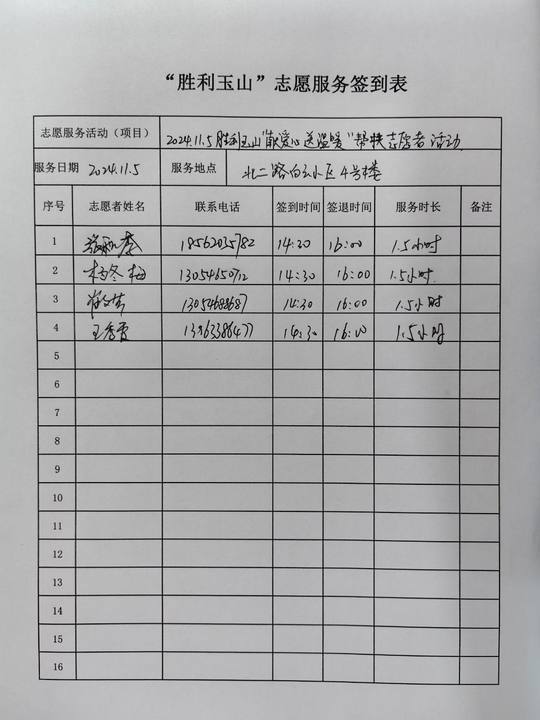 “胜利玉山”志愿服务签到表
志愿服务活动（项目） 2024.11.5胜利玉山“献爱心送温暖”帮扶志愿者活动
服务日期 2024.11.5 服务地点 北二路白云小区4号楼
序号 志愿者姓名 联系电话 签到时间 签退时间 服务时长 备注
1 18562035782 14:30 16:00 1.5小时
2 杨冬梅 13054650712 14:30 16:00 1.5小时
3 14:30 16:00 1.5小时
4 王秀霞 13963386477 14:30 16:00 1.5小时
5
6
7
8
9
10
11
12
13
14
15
16